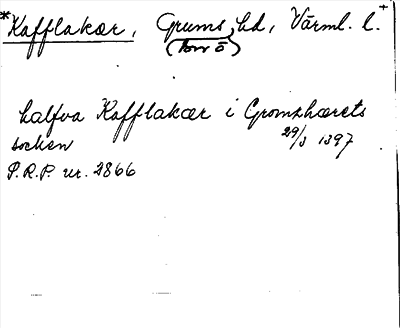 *Kafflakær, Grums hd, Värml. l. +
(Borr ö)
halfva Kafflakær i Gromshærets
socken 29/3 1397
P.R.P. nr. 2866